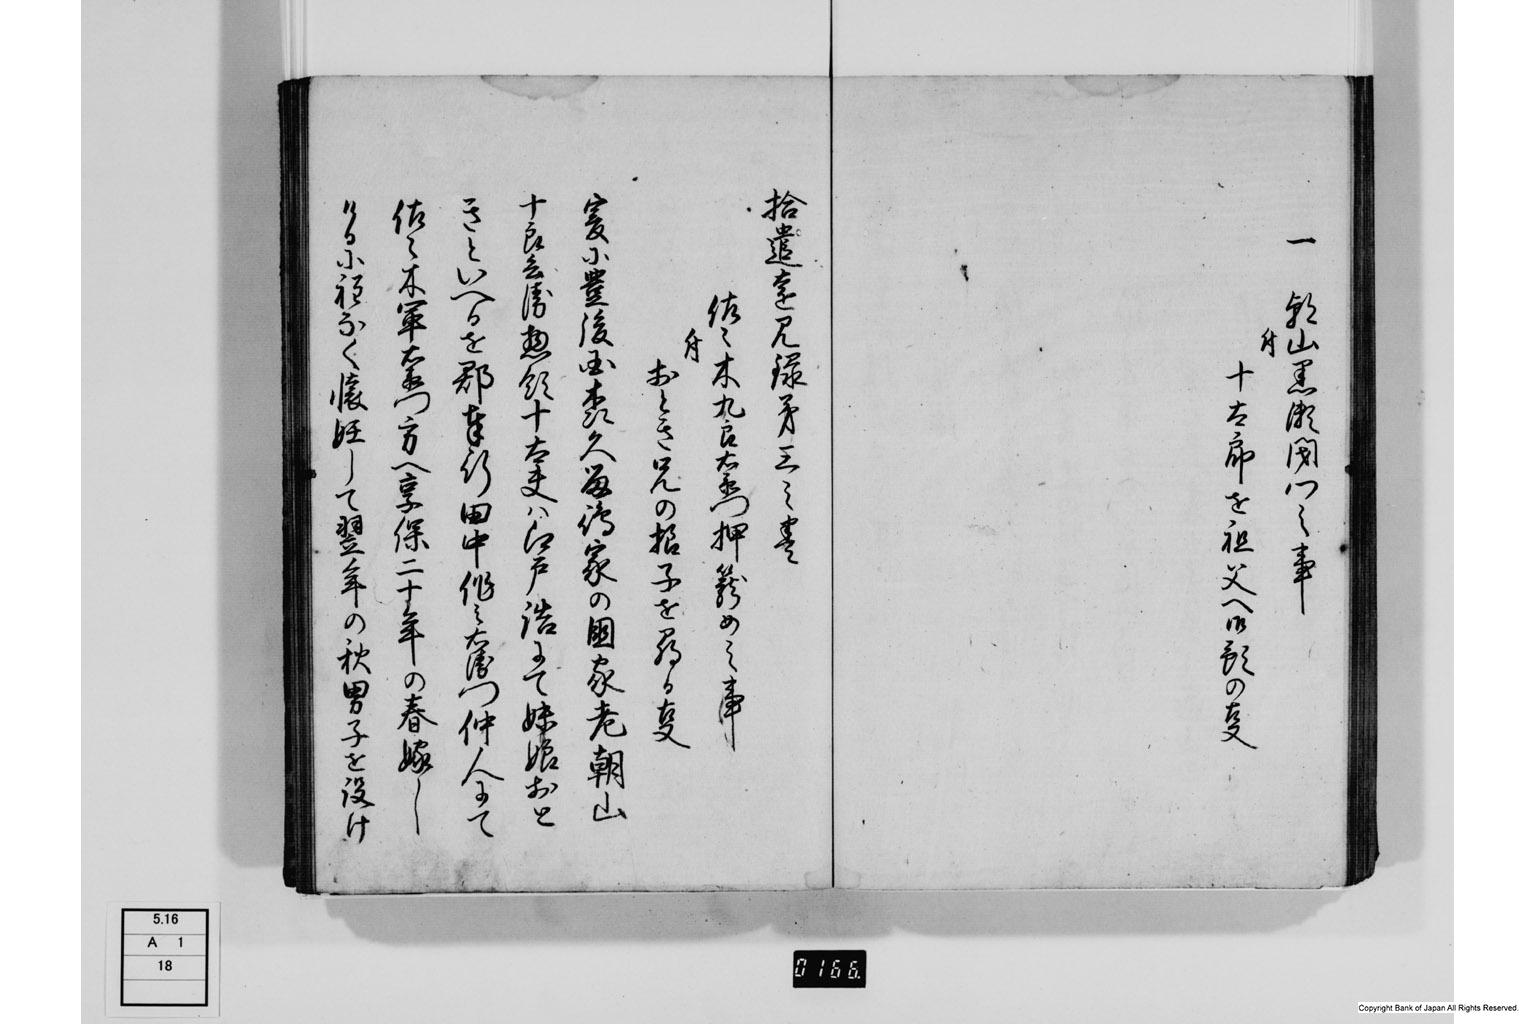 一 朝山黒瀬閉門之事
付
十太郎を祖父へ御預の事
拾遺遠見録第三之巻
佐々木九良右衛門押籠め之事
付
おとき兄の招子を尋る事
爰に豊後国森久留嶋家の国家老朝山
十良兵衛惣領十太夫ハ江戸詰にて妹娘おと
きといへるを郡奉行田中作之右衛門仲人にて
佐々木軍右衛門方へ享保二十年の春嫁し
ける小程なく懐妊して翌年の秋男子を設け
5.16
A 1
18
0166.
Copyright Bank of Japan All Rights Reserved.